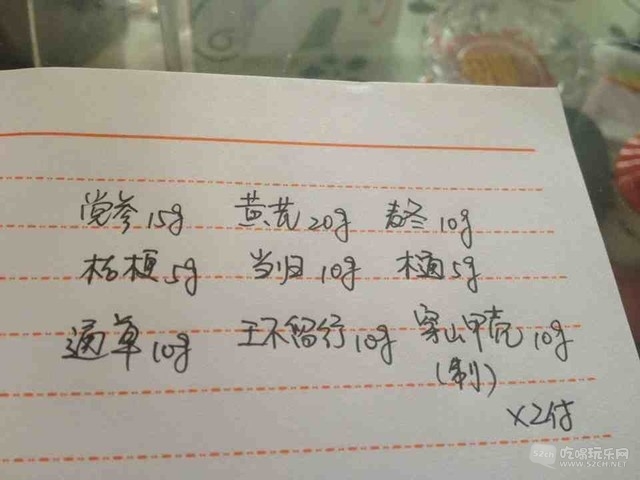 党参15g 黄芪20g 麦冬10g
桔梗5g 当归10g 木通5g
通草10g 王不留行10g 穿山甲壳10g
(制)
x2付
52ch 吃喝玩乐网
WWW.52CH.NET